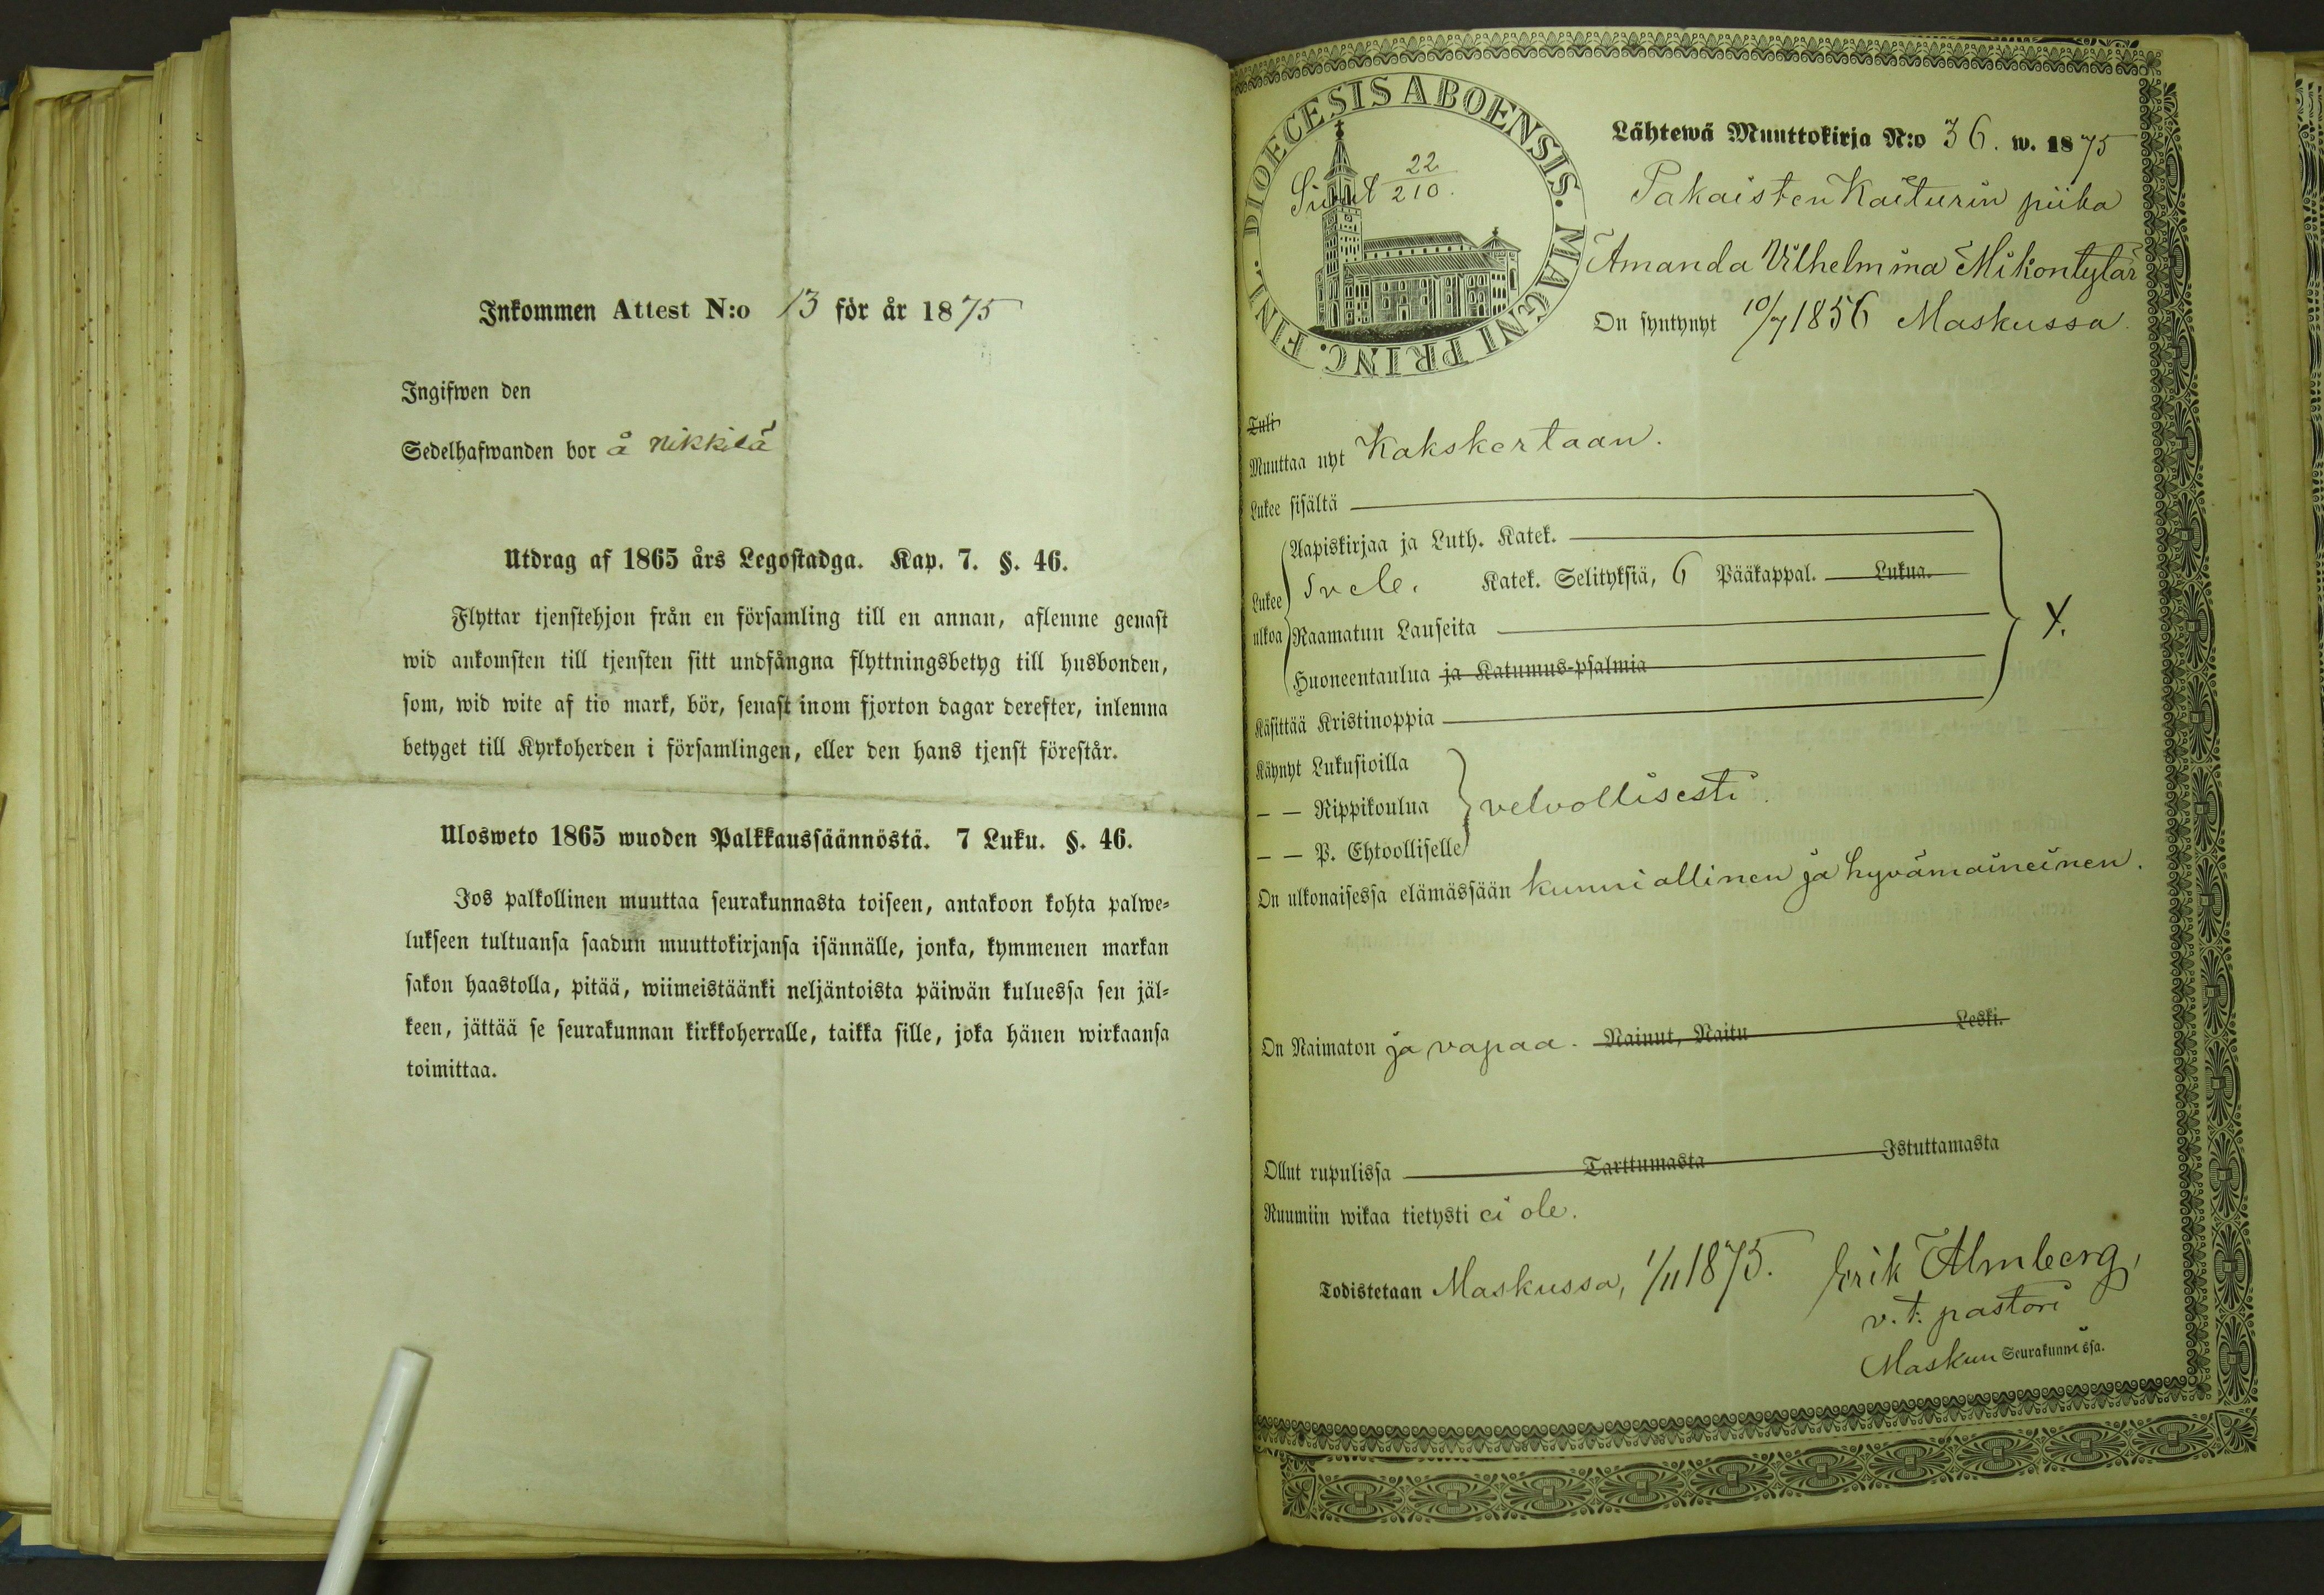 Inkommen Attest N:o 13 för år 1875
Ingifwen den
Sedelhafwanden bor å Nikkilä
Utdrag af 1865 års Legostadga. Kap. 7. §. 46.
Flyttar tjenstehjon från en församling till en annan, aflemne genast
wid ankomsten till tjensten sitt undfångna flyttningsbetyg till husbonden,
som, wid wite af tio mark, bör, senast inom fjorton dagar derefter, inlemna
betyget till Kyrkoherden i församlingen, eller den hans tjenst förestår.
Ulosweto 1865 wuoden Palkkaussäännöstä. 7 Luku. §. 46.
Jos palkollinen muuttaa seurakunnasta toiseen, antakoon kohta palwe-
lukseen tultuansa saadun muuttokirjansa isännälle, jonka, kymmenen markan
sakon haastolla, pitää, wiimeistäänki neljäntoista päiwän kuluessa sen jäl-
keen, jättää se seurakunnan kirkkoherralle, taikka sille, joka hänen wirkaansa
toimittaa.
DIOECESIS ABOENSIS. MAGNI PRINC. FINL.
Sivut 22/210.
Lähtewä Muuttokirja N:o 36. w. 1875
Pakaisten Kaiturin piika
Amanda Vilhelmina Mikontytär
On syntynyt 10/7 1856 Maskussa.
Tuli
Muuttaa nyt Kakskertaan.
Lukee sisältä
Aapiskirjaa ja Luth. Katek.
Lukee Svele. Katek. Selityksiä, 6 Pääkappal. Lukua.
ulkoa Raamatun Lauseita
Huoneentaulua ja Katumus-psalmia
Käsittää Kristinoppia
Käynyt Lukusioilla
— — Rippikoulua velvollisesti.
— — P. Ehtoolliselle
On ulkonaisessa elämässään kunniallinen ja hyvämaineinen.
On Naimaton ja vapaa. Nainut, Naitu Leski.
Ollut rupulissa Tarttumasta Istuttamasta
Ruumiin wikaa tietysti ei ole.
Todistetaan Maskussa, 1/11 1875. Erik Almberg,
v. t. pastori
Maskun Seurakunnissa.